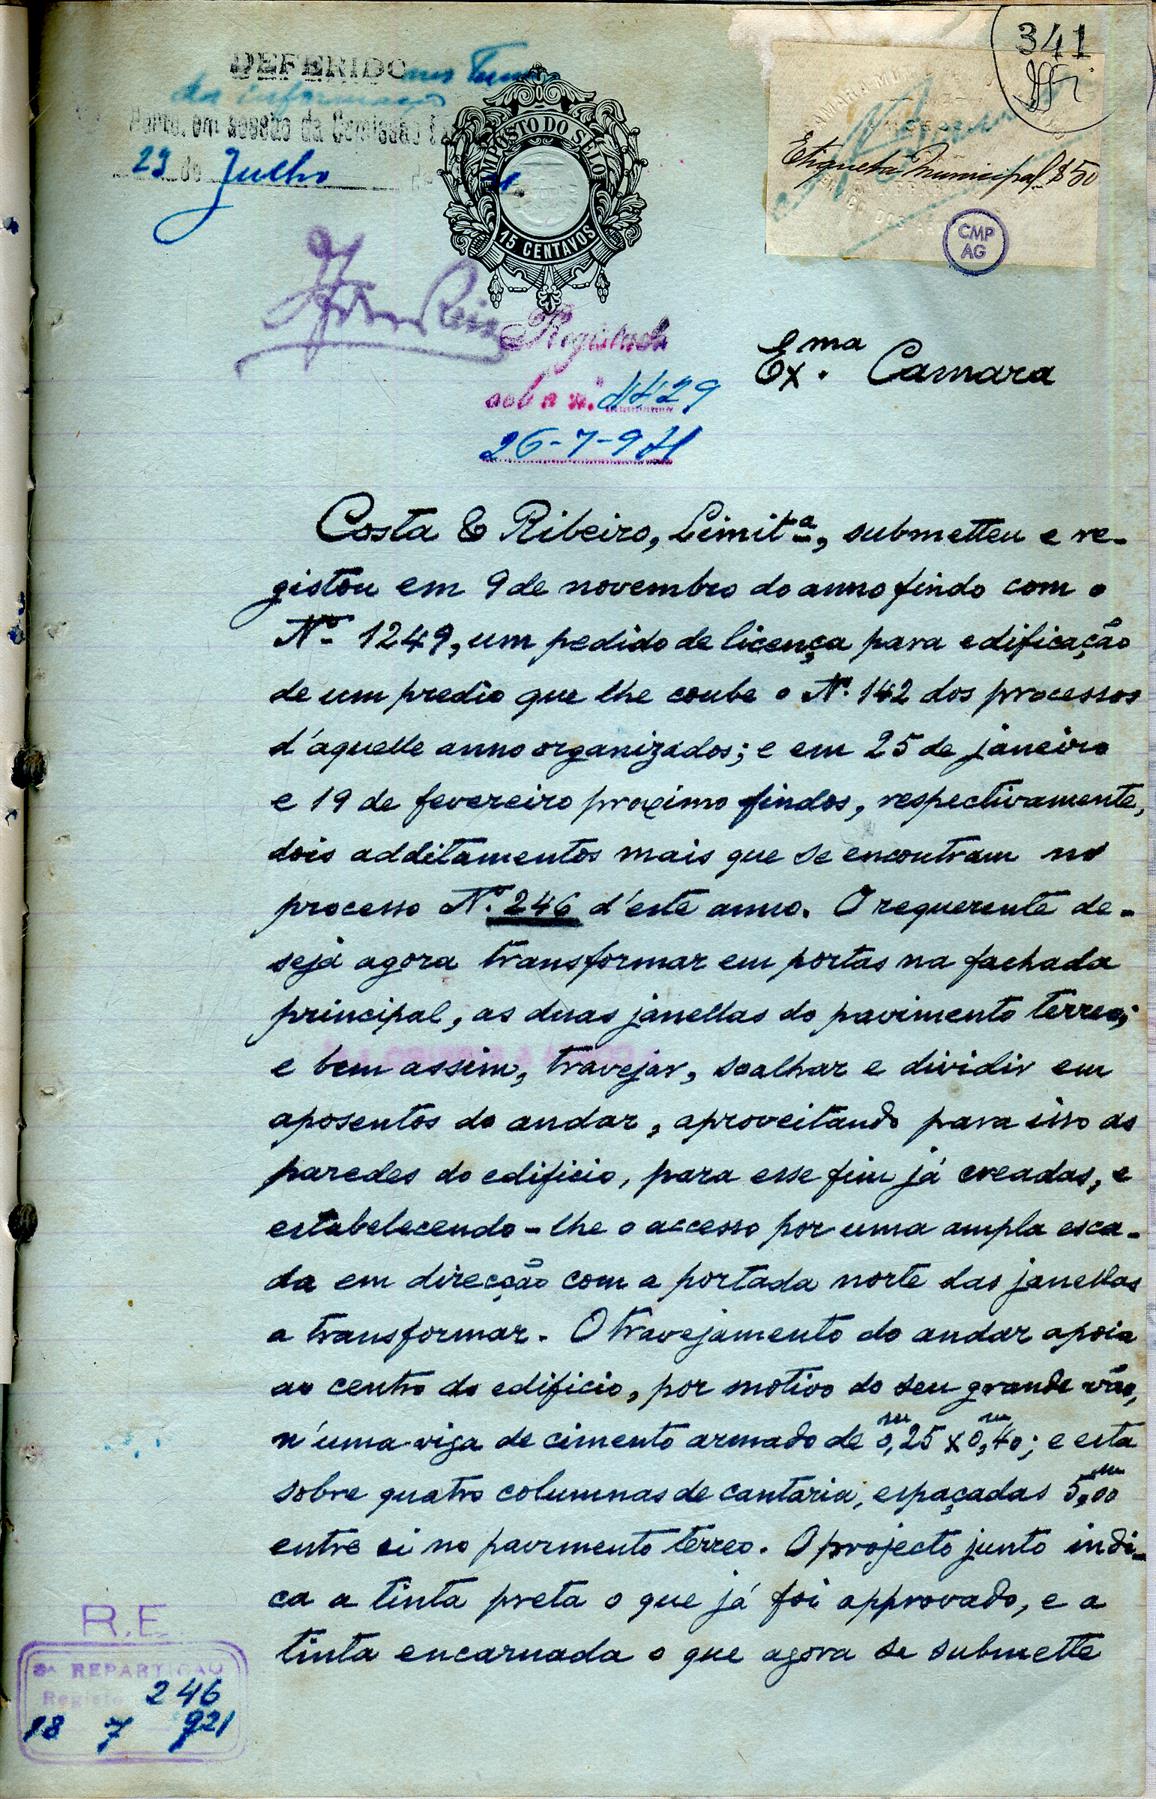 341
DEFERIDO nos Termos
da informação
Porto, em sessão da Comissão Ex
23 de Julho de
IMPOSTO DO SELO
15 CENTAVOS
CAMARA MU
Etiqueta Municipal $50
CMP
AG
Registado
sob o n.º 1429
26-7-921
Ex.ma Camara
Costa & Ribeiro, Limit.a, submetteu e re-
gistou em 9 de novembro do anno findo com o
Nº 1249, um pedido de licença para edificação
de um predio que lhe coube o Nº 142 dos processos
d'aquelle anno organizados; e em 25 de janeiro
e 19 de fevereiro proximo findos, respectivamente,
dois additamentos mais que se encontram no
processo Nº 246 d'este anno. O requerente de-
seja agora transformar em portas na fachada
principal, as duas janellas do pavimento terreo;
e bem assim, travejar, soalhar e dividir em
aposentos do andar, aproveitando para isso as
paredes do edificio, para esse fim já creadas, e
estabelecendo-lhe o accesso por uma ampla esca-
da em direcção com a portada norte das janellas
a transformar. O travejamento do andar apoia
ao centro do edificio, por motivo do seu grande vão,
n'uma viga de cimento armado de 0,m25 x 0,m40; e esta
sobre quatro columnas de cantaria, espaçadas 5,m00
entre si no pavimento terreo. O projecto junto indi-
ca a tinta preta o que já foi approvado, e a
tinta encarnada o que agora se submette
R.E
3ª REPARTIÇÃO
Registo 246
18 7 921